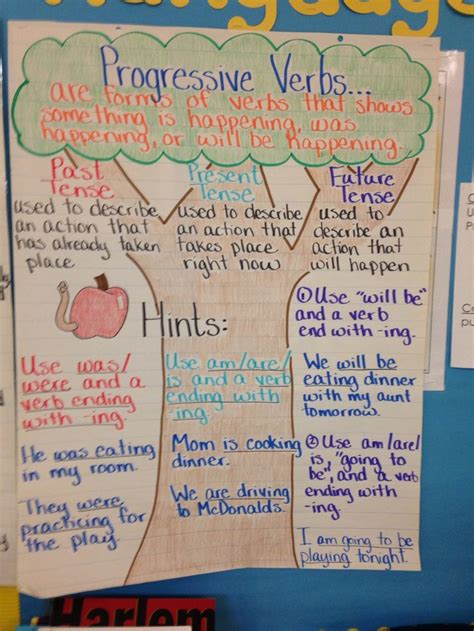 Progressive Verbs...
are forms of verbs that shows
something is happening, was
happening, or will be happening.
Past
Tense
used to describe
an action that
has already taken
place
Present
Tense
used to describe
an action that
takes place
right now
Future
Tense
used to
describe an
action that
will happen
Hints:
Use was/
were and a
verb ending
with -ing.
He was eating
in my room.
They were
practicing for
the play.
Use am/are/
is and a verb
ending with
-ing.
Mom is cooking
dinner.
We are driving
to McDonalds.
① Use "will be"
and a verb
end with -ing.
We will be
eating dinner
with my aunt
tomorrow.
② Use am/are/
is, "going to
be", and a verb
ending with
-ing.
I am going to be
playing tonight.
Harlem